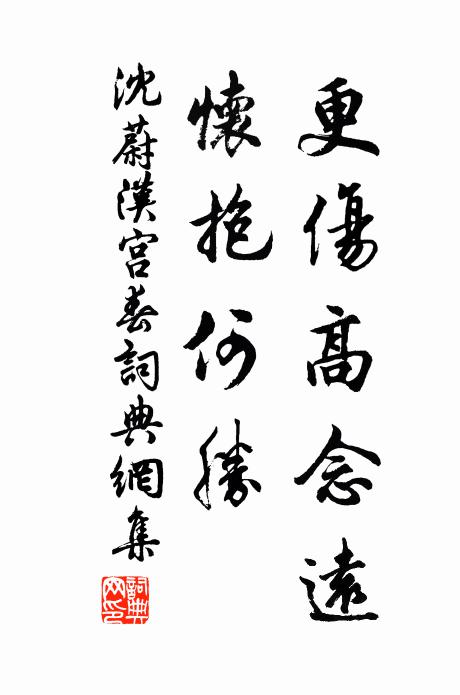 更傷高念遠
懷抱何勝
沈蔚漢宮春詞典網集
詞典網印